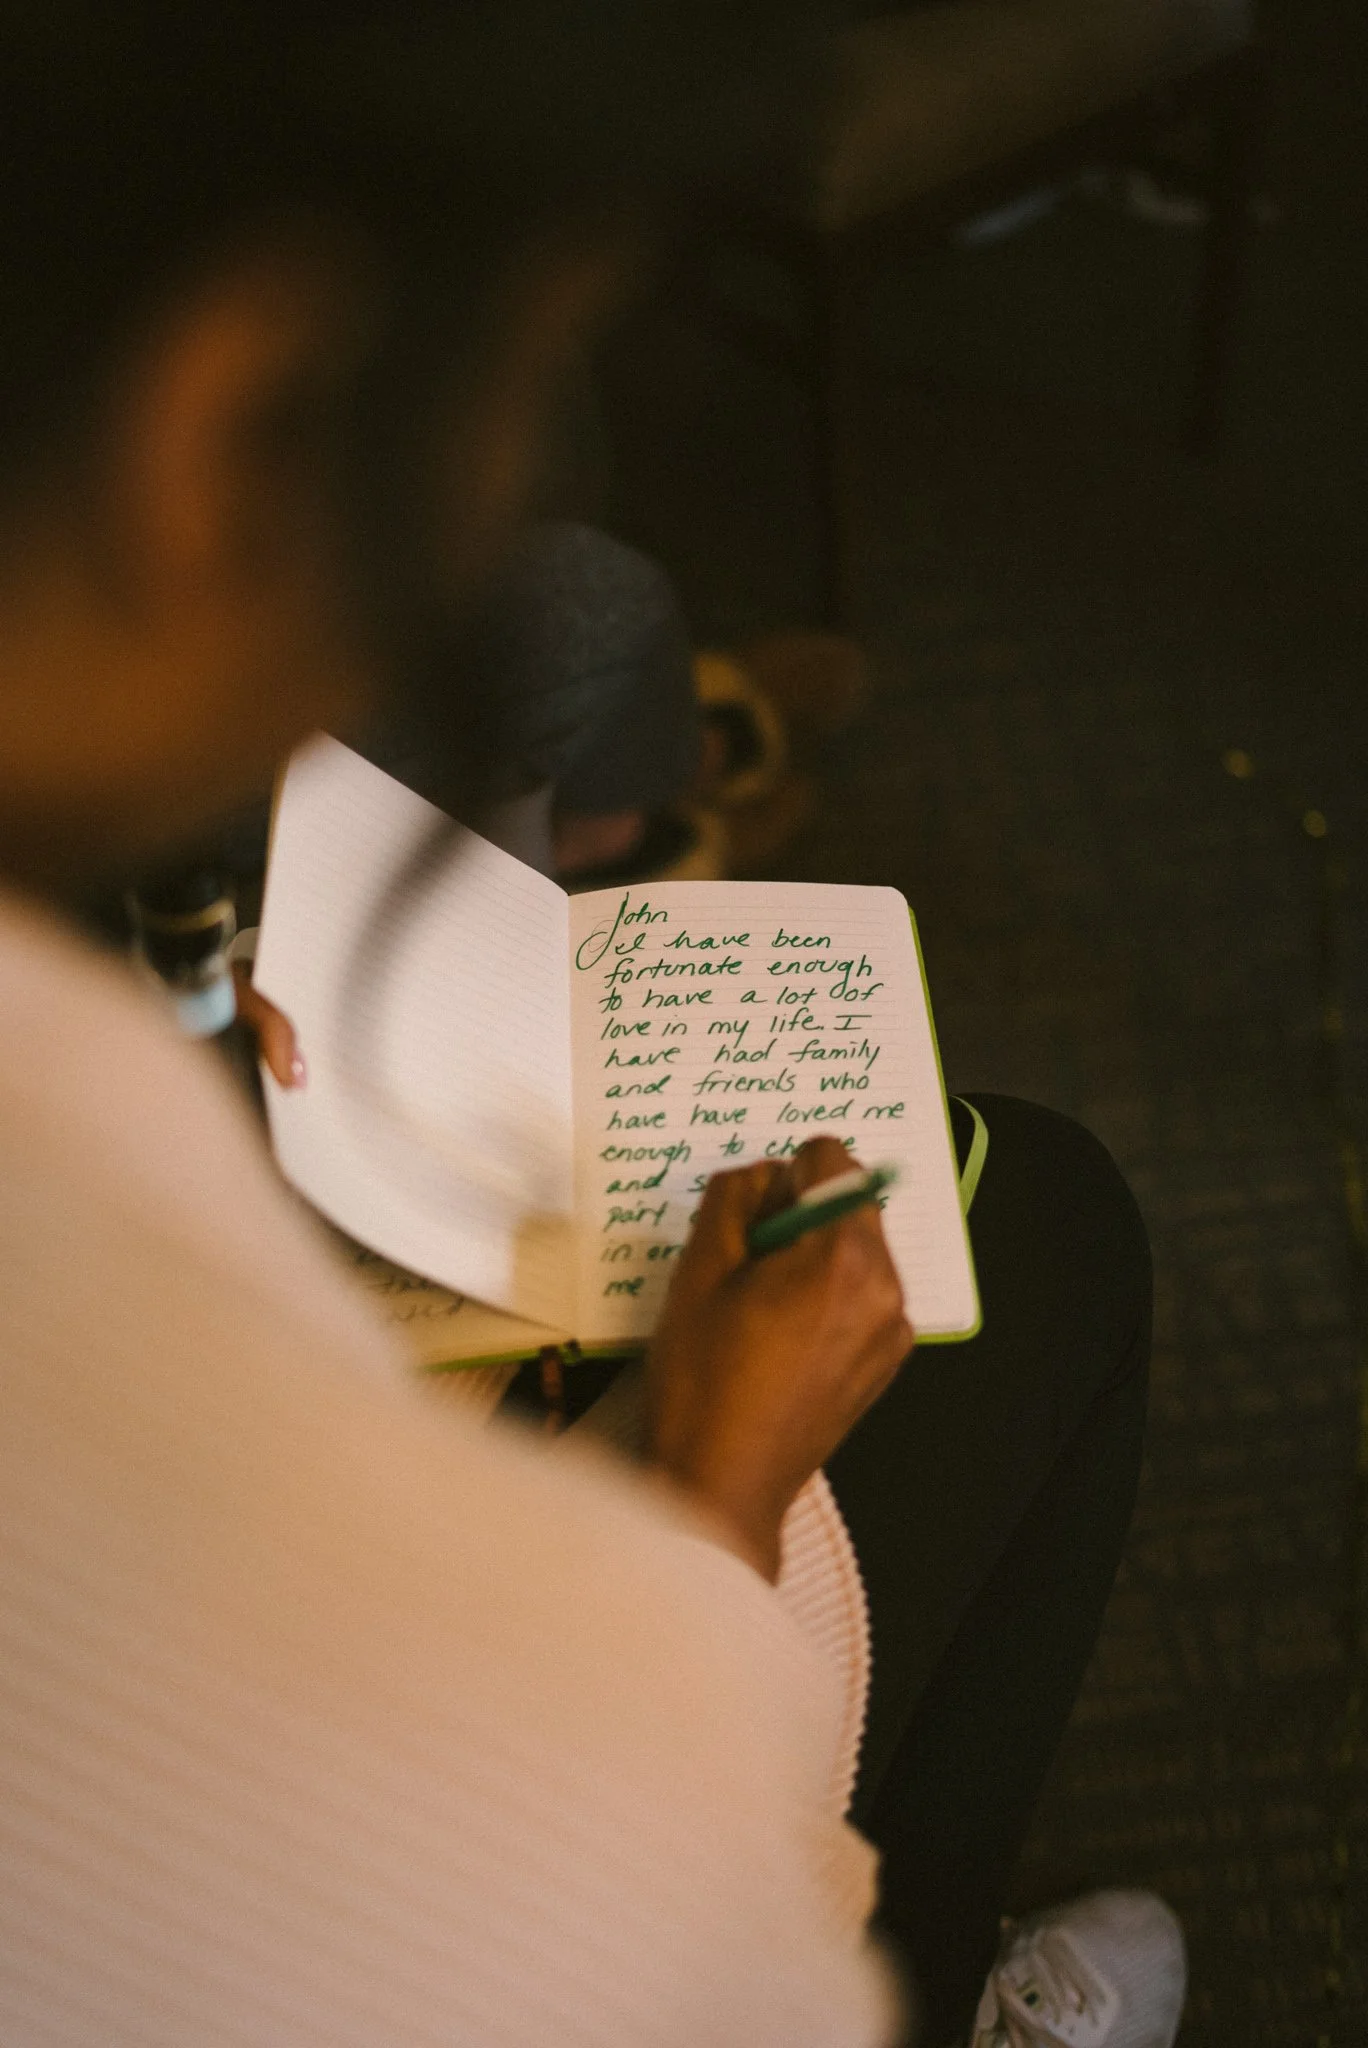 John
I have been
fortunate enough
to have a lot of
love in my life. I
have had family
and friends who
have have loved me
enough to
and
part
in
me